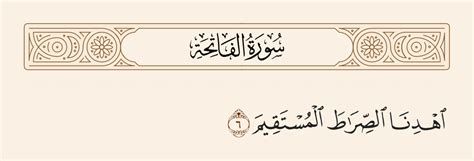 سُورَةُ الفَاتِحَةِ
ٱهْدِنَا ٱلصِّرَٰطَ ٱلْمُسْتَقِيمَ ٦